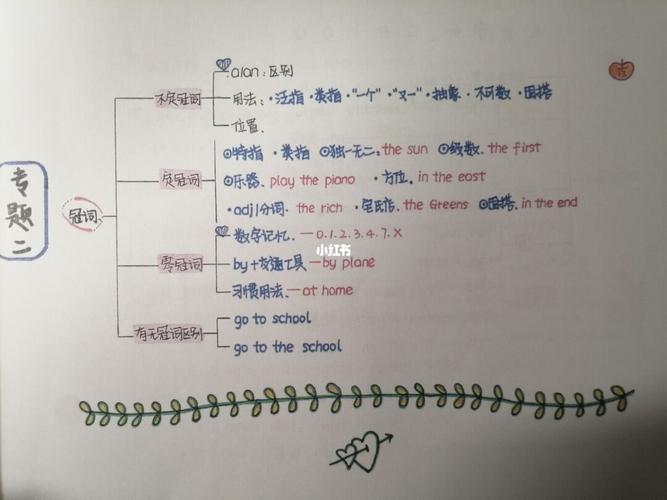 专题二
冠词
不定冠词
a/an:区别
用法:·泛指·类指·"一个"·"又一"·抽象·不可数·固搭
位置.
定冠词
特指·类指 独一无二:the sun 级数.the first
乐器.play the piano ·方位.in the east
·adj/分词.the rich ·姓氏.the Greens 固搭.in the end
零冠词
数字记忆.—0.1.2.3.4.7.X
by+交通工具—by plane
习惯用法.—at home
有无冠词区别
go to school
go to the school
小红书